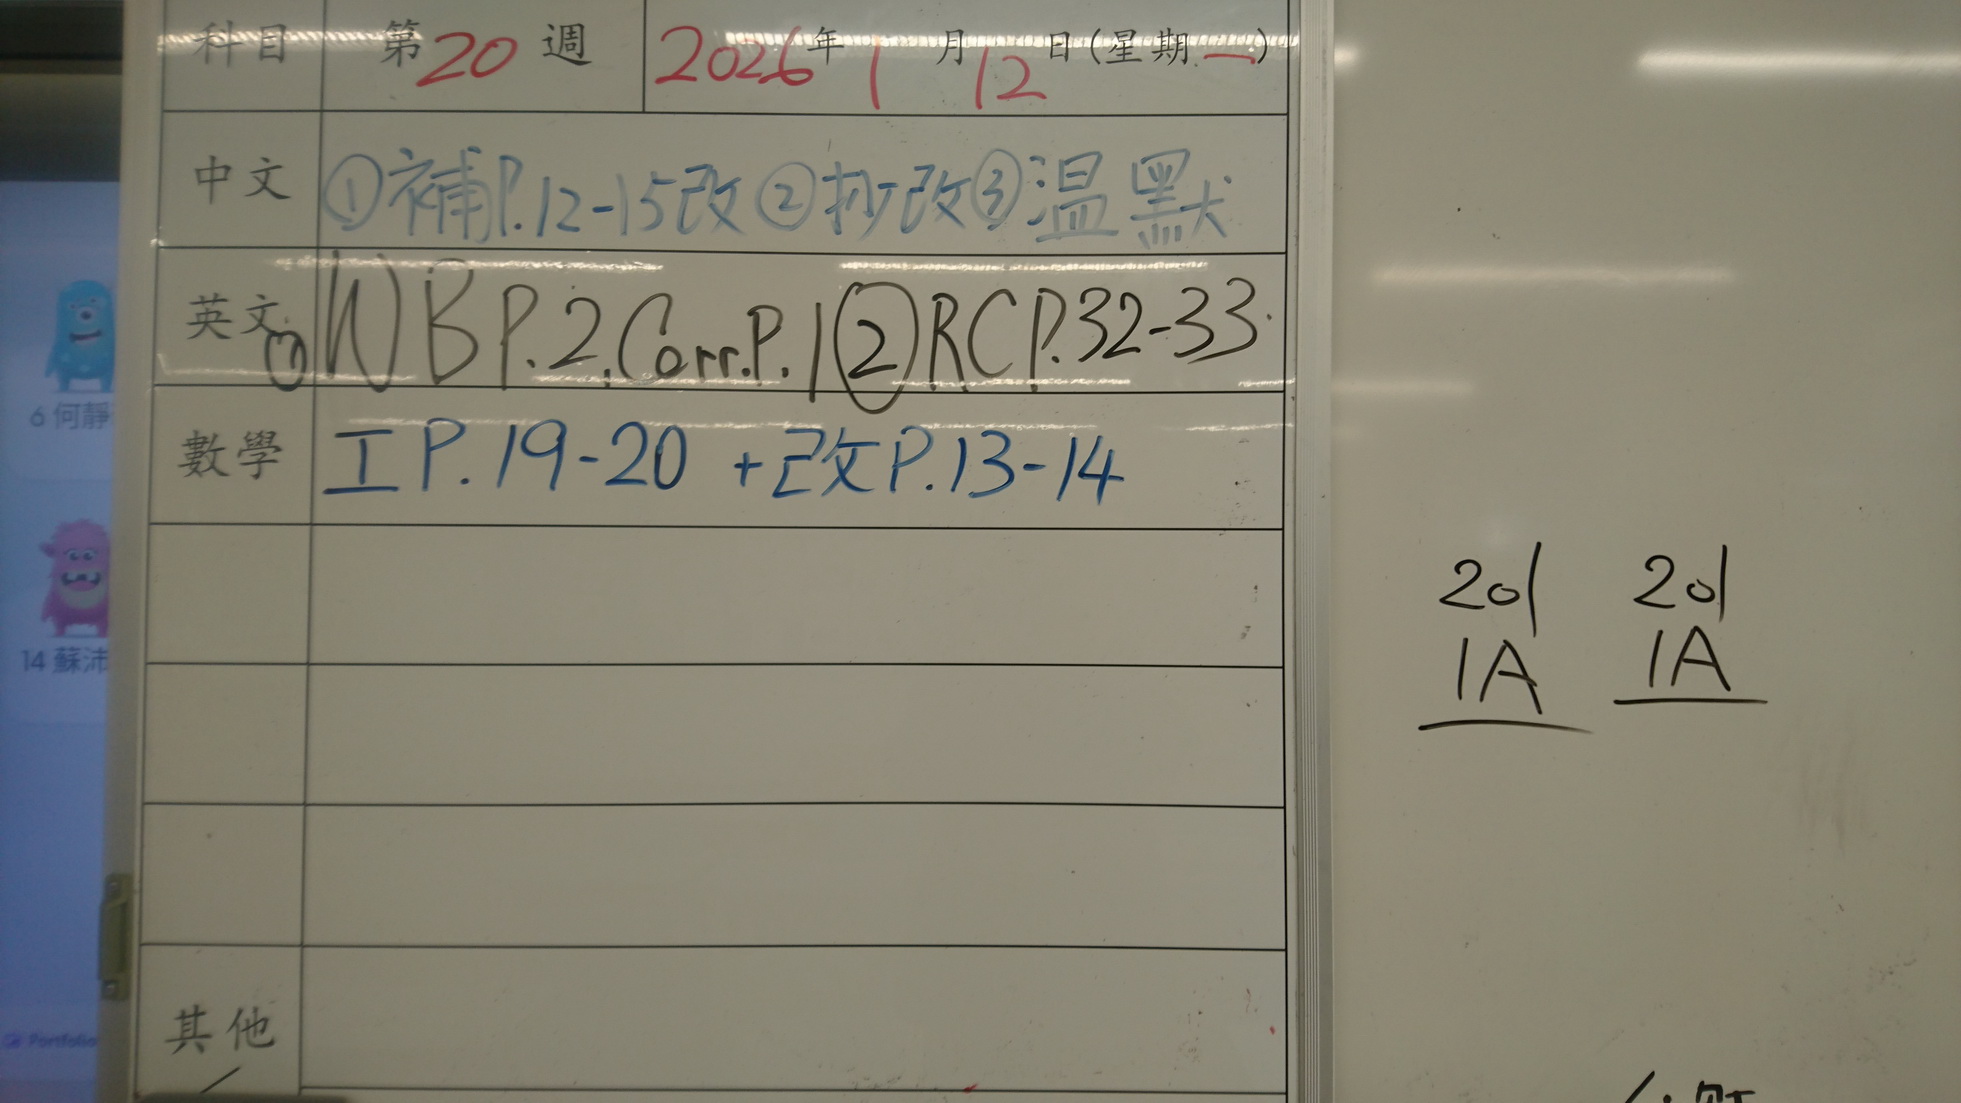 科目 第20週 2026年1月12日(星期一)
中文 ①補P.12-15改②抄改③温默
英文 ①WB P.2, Corr.P.1②RC P.32-33.
數學 工P.19-20 +改P.13-14
其他
6 何靜
14 蘇沛
Portfolio
201 201
1A 1A